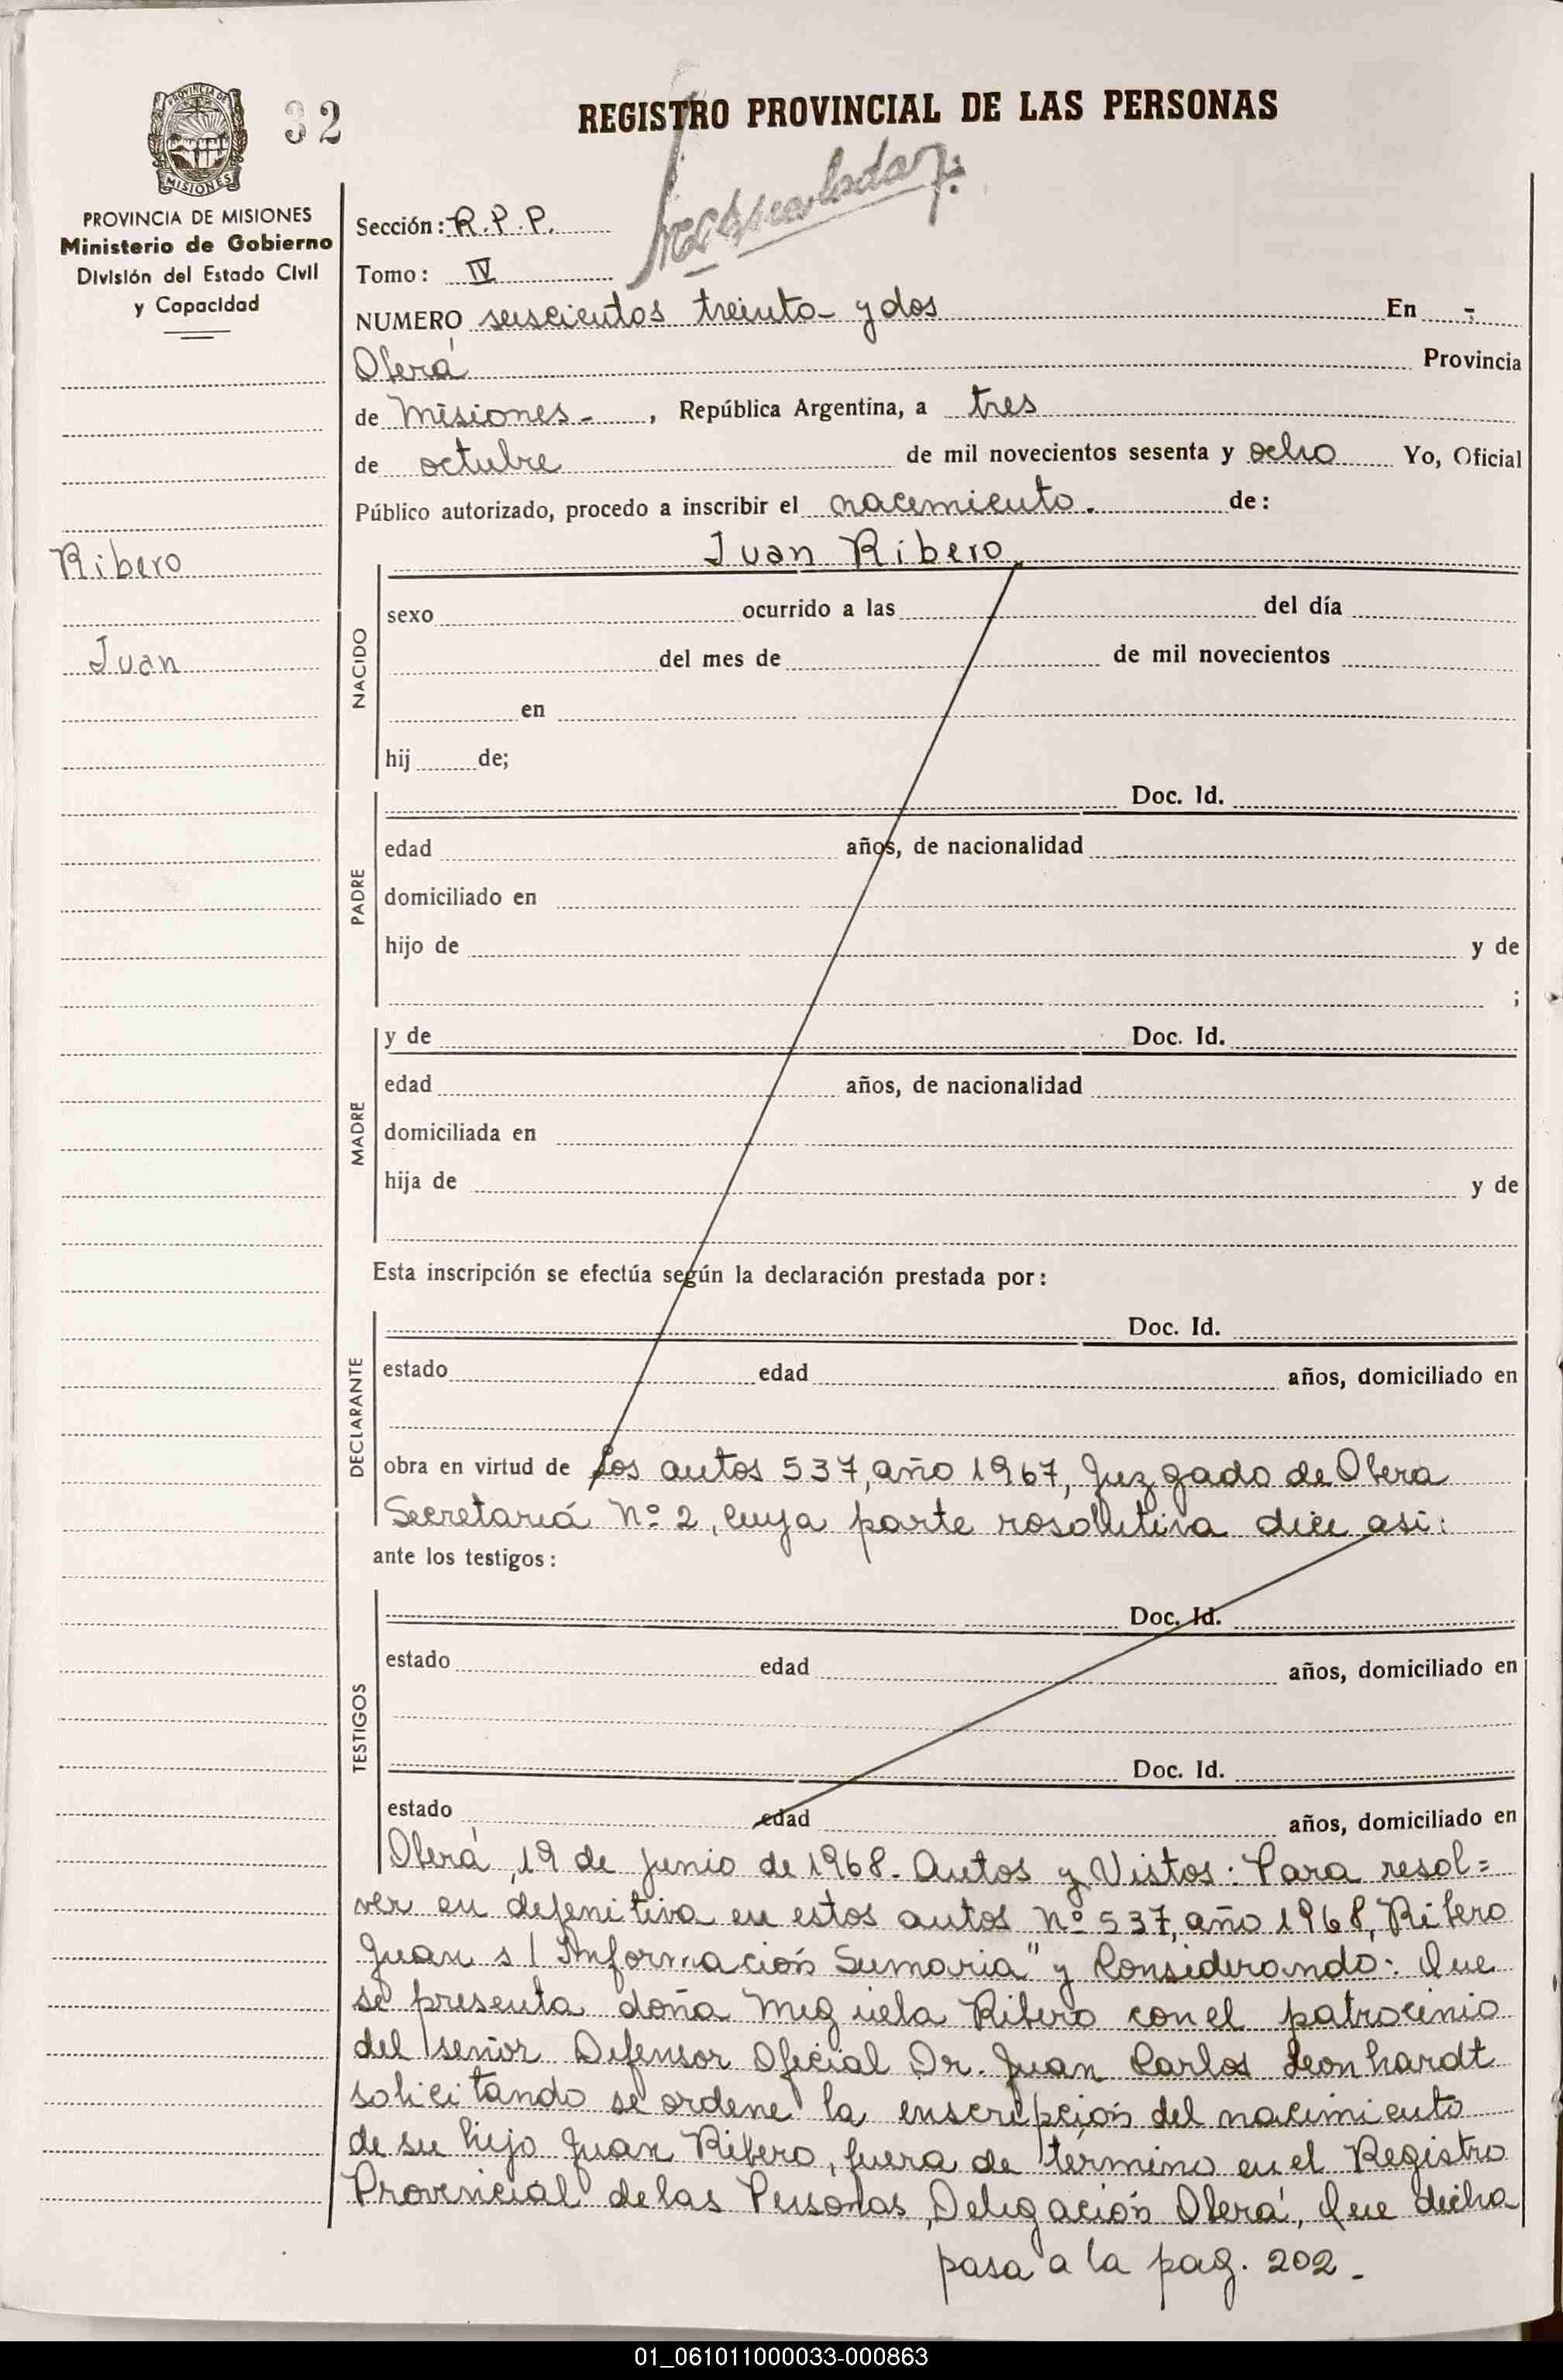 PROVINCIA DE
MISIONES
32
REGISTRO PROVINCIAL DE LAS PERSONAS
PROVINCIA DE MISIONES
Ministerio de Gobierno
División del Estado Civil
y Capacidad
Ribero
Juan
Sección: R.P.P.
Tomo: IV
NUMERO seiscientos treinta y dos En -
Oberá Provincia
de Misiones- , República Argentina, a tres
de octubre de mil novecientos sesenta y ocho Yo, Oficial
Público autorizado, procedo a inscribir el nacimiento. de:
Juan Ribero
NACIDO
sexo ocurrido a las del día
del mes de de mil novecientos
en
hij de;
PADRE
Doc. Id.
edad años, de nacionalidad
domiciliado en
hijo de y de
;
MADRE
y de Doc. Id.
edad años, de nacionalidad
domiciliada en
hija de y de
Esta inscripción se efectúa según la declaración prestada por:
DECLARANTE
Doc. Id.
estado edad años, domiciliado en
obra en virtud de los autos 537, año 1967, Juzgado de Obera
Secretaria Nº 2, cuya parte rosolutiva dice asi:
ante los testigos:
TESTIGOS
Doc. Id.
estado edad años, domiciliado en
Doc. Id.
estado edad años, domiciliado en
Oberá, 19 de junio de 1968- Autos y Vistos: Para resol=
ver en defenitiva en estos autos Nº 537, año 1968, Ribero
Juan s/ Información Sumaria" y Considerando: Que
se presenta doña Miguela Ribero con el patrocinio
del señor Defensor Oficial Dr. Juan Carlos Leonhardt
solicitando se ordene la enscripción del nacimiento
de su hijo Juan Ribero, fuera de término en el Registro
Provincial de las Personas, Delegación Oberá, Que dicha
pasa a la pag. 202-
01_061011000033-000863